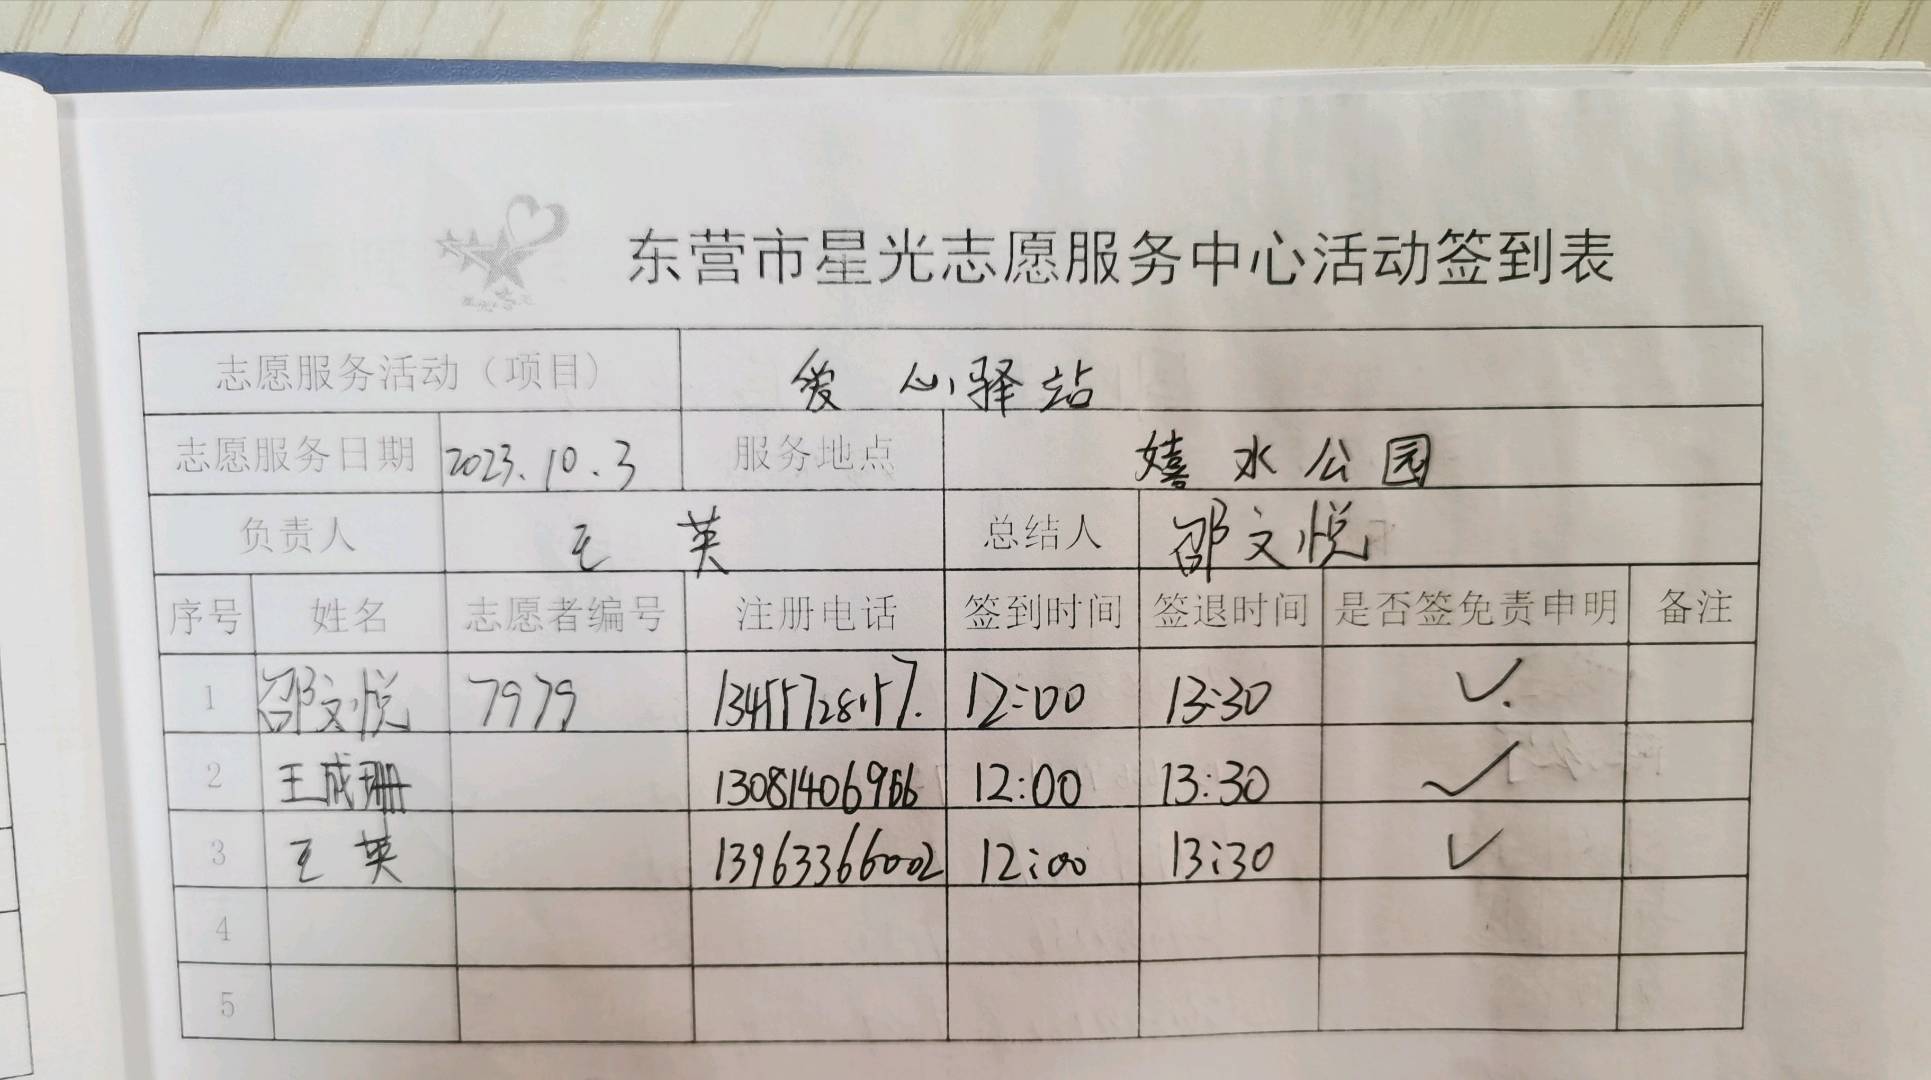 东营市星光志愿服务中心活动签到表
志愿服务活动（项目） 爱心驿站
志愿服务日期 2023.10.3 服务地点 嬉水公园
负责人 王英 总结人 邵文悦
序号 姓名 志愿者编号 注册电话 签到时间 签退时间 是否签免责申明 备注
1 邵文悦 7979 13455728157. 12:00 13:30 ✓.
2 王成珊 13081406966 12:00 13:30 ✓
3 王英 13963366002 12:00 13:30 ✓
4
5